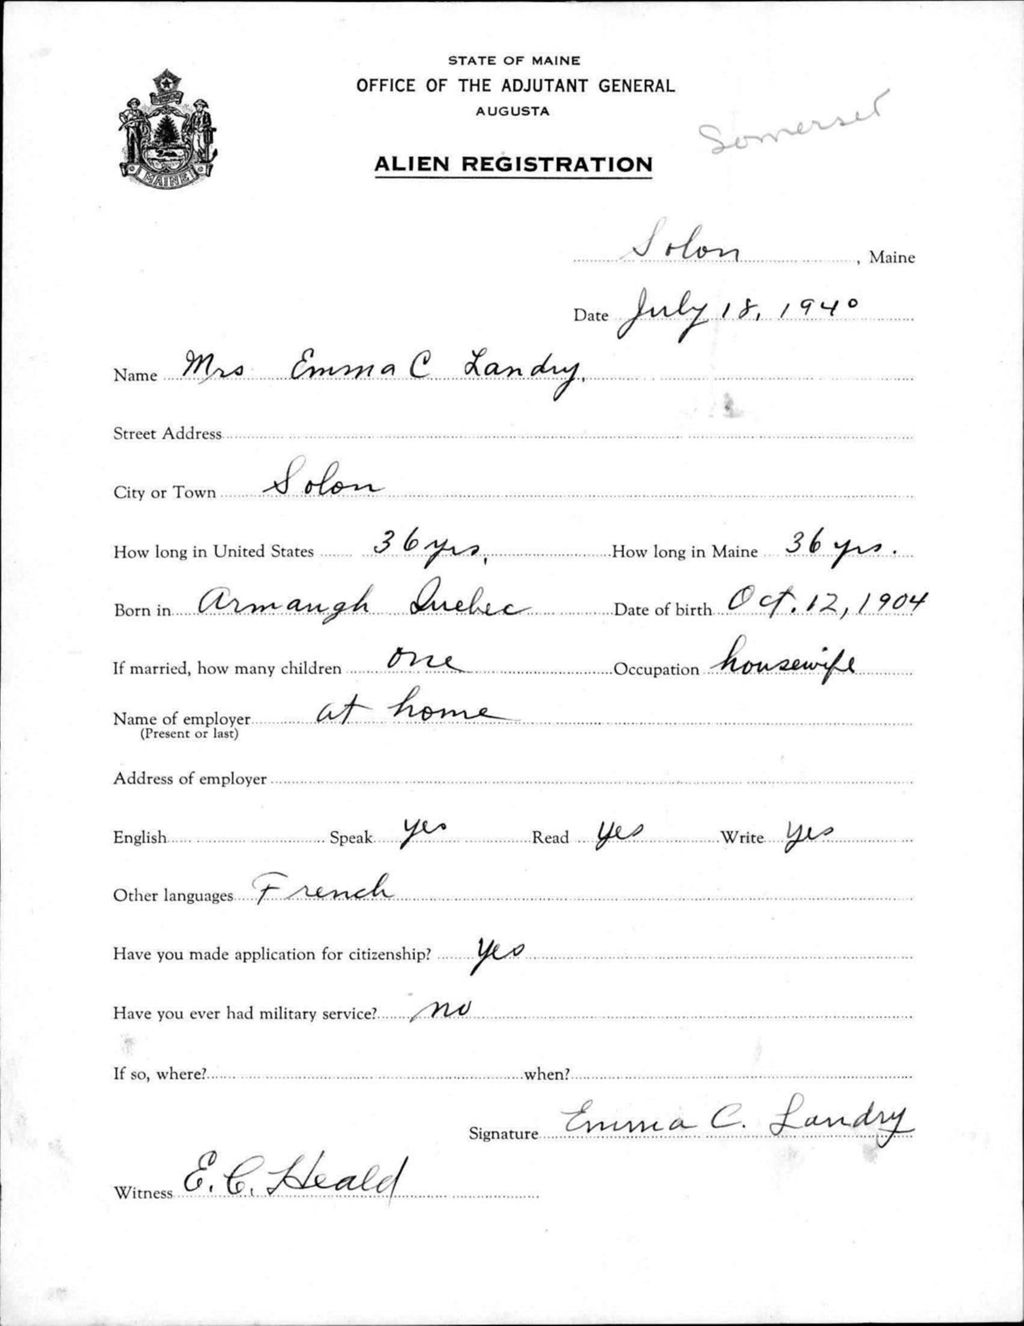 STATE OF MAINE
OFFICE OF THE ADJUTANT GENERAL
AUGUSTA
Somerset
ALIEN REGISTRATION
MAINE
Solon, Maine
Date July 18, 1940
Name Mrs Emma C Landry,
Street Address
City or Town Solon
How long in United States 36 yrs, How long in Maine 36 yrs.
Born in Armaugh Quebec Date of birth Oct. 12, 1904
If married, how many children one Occupation housewife
Name of employer at home
(Present or last)
Address of employer
English Speak yes Read yes Write yes
Other languages French
Have you made application for citizenship? yes
Have you ever had military service? no
If so, where? when?
Signature Emma C. Landry
Witness E. C. Heald